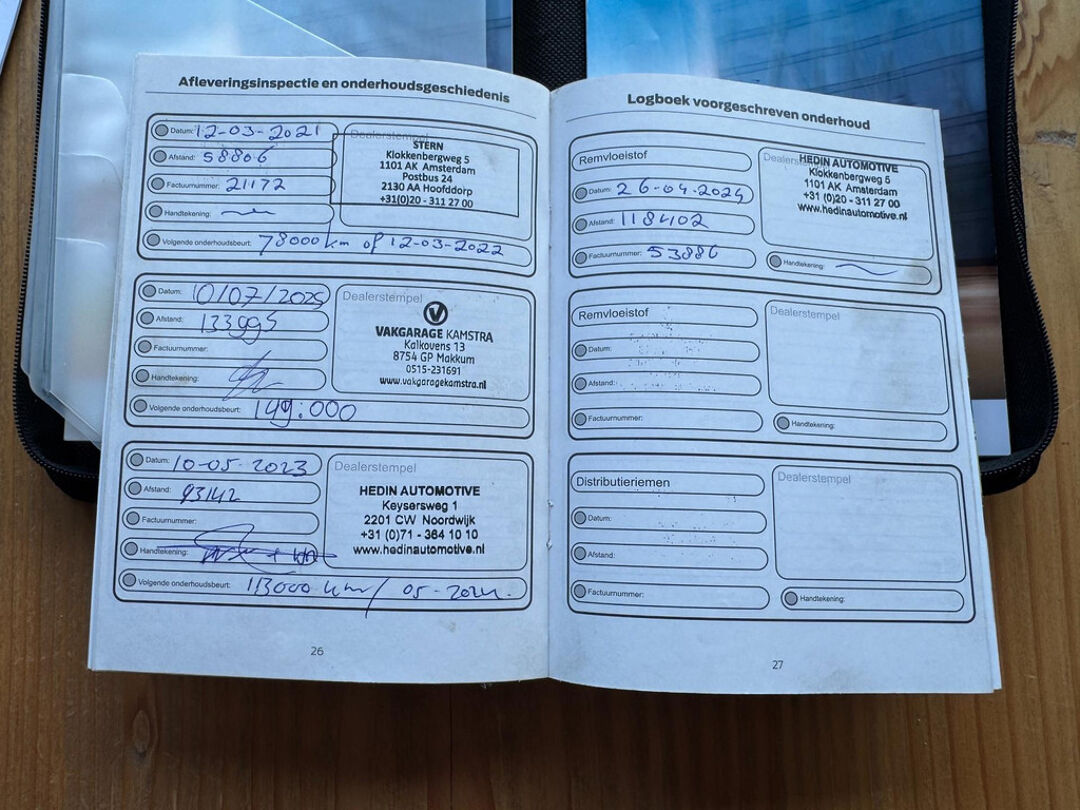 Afleveringsinspectie en onderhoudsgeschiedenis
Datum: 12-03-2021
Afstand: 58806
Factuurnummer: 21172
Handtekening:
Volgende onderhoudsbeurt: 78000 km of 12-03-2022
Dealerstempel
STERN
Klokkenbergweg 5
1101 AK Amsterdam
Postbus 24
2130 AA Hoofddorp
+31(0)20 - 311 27 00
Datum: 10/07/2025
Afstand: 133995
Factuurnummer:
Handtekening:
Volgende onderhoudsbeurt: 149:000
Dealerstempel
VAKGARAGE KAMSTRA
Kalkovens 13
8754 GP Makkum
0515-231691
www.vakgaragekamstra.nl
Datum: 10-05-2023
Afstand: 93142
Factuurnummer:
Handtekening:
Volgende onderhoudsbeurt: 113000 km / 05-2024.
Dealerstempel
HEDIN AUTOMOTIVE
Keysersweg 1
2201 CW Noordwijk
+31 (0)71 - 364 10 10
www.hedinautomotive.nl
26
Logboek voorgeschreven onderhoud
Remvloeistof
Datum: 26-04-2024
Afstand: 118402
Factuurnummer: 53886
Dealerstempel
HEDIN AUTOMOTIVE
Klokkenbergweg 5
1101 AK Amsterdam
+31 (0)20 - 311 27 00
www.hedinautomotive.nl
Handtekening:
Remvloeistof
Datum:
Afstand:
Factuurnummer:
Dealerstempel
Handtekening:
Distributieriemen
Datum:
Afstand:
Factuurnummer:
Dealerstempel
Handtekening:
27